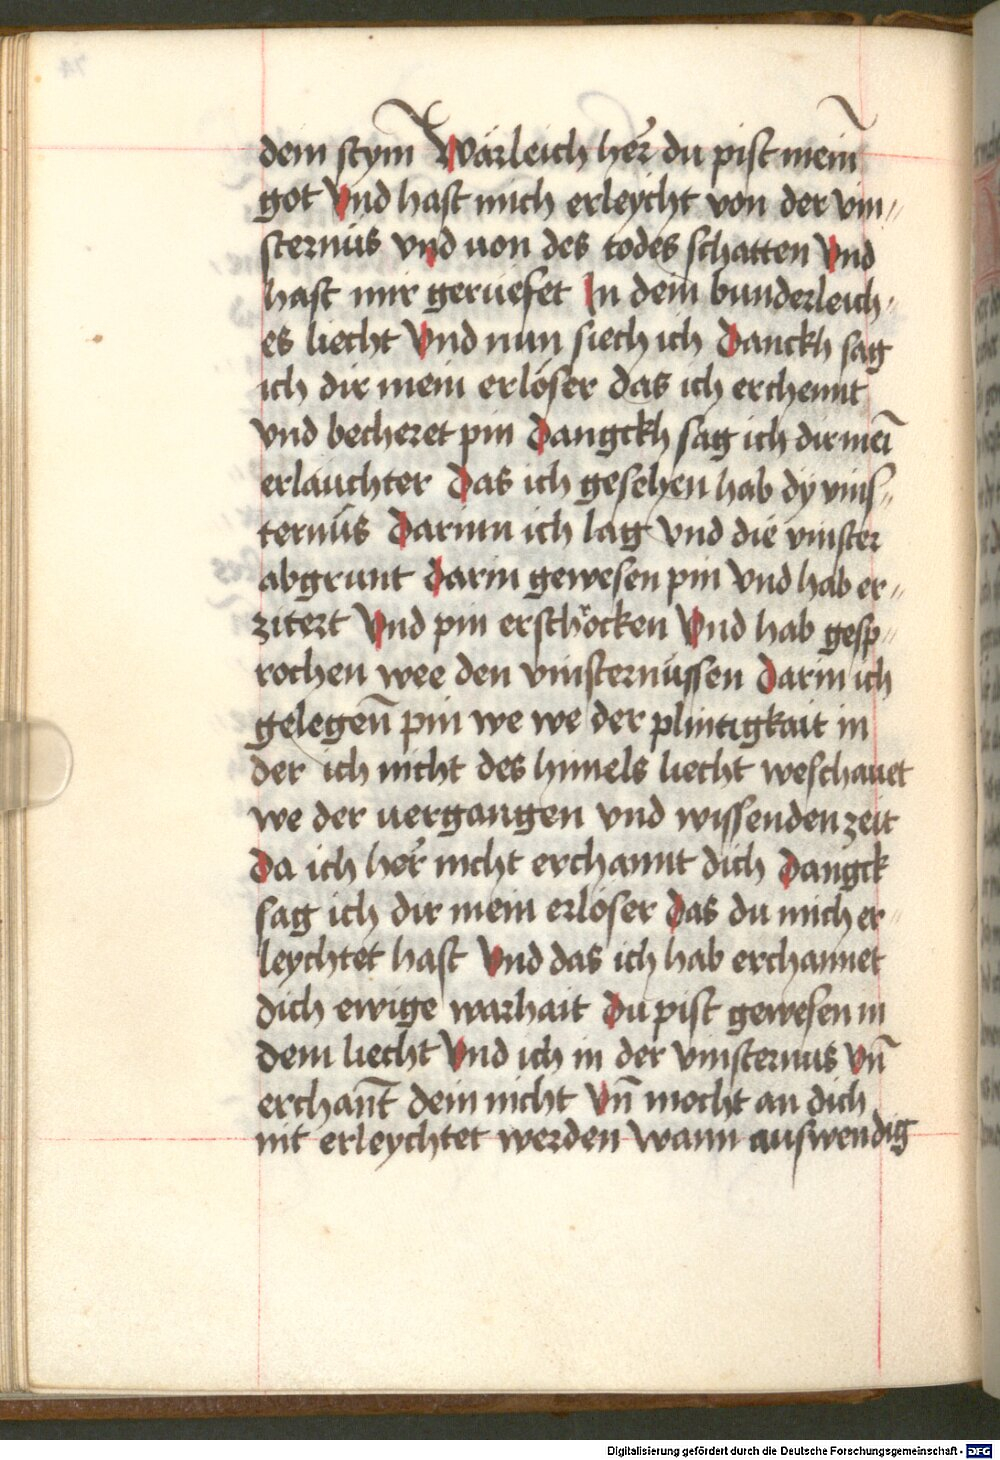 dein stym̄ Wärleich her̄ du pist mein̄
got Vnd hast mich erleycht von der vin〃
sternüs vnd uon des todes schatten Vnd
hast mir gerüefet In dein bunderleich-
es liecht Vnd nun siech ich Danckh sag
ich dir mein erlöser das ich erchennt
vnd becheret pin Dangckh sag ich dir mei̅
erlauchter Das ich gesehen hab dÿ vins〃
ternüs Darinn ich lag vnd die vinster
abgrunt darin gewesen pin Vnd hab er〃
zitert Vnd pin erschrocken Vnd hab gesp〃
rochen wee den vinsternüssen Darin ich
gelegen̄ pin we we der plintigkait in
der ich nicht des himels liecht weschauet
we der uergangen vnd wissenden zeit
Da ich her̄ nicht erchannt dich Dangck
sag ich dir mein erlöser Das du mich er〃
leychtet hast Vnd das ich hab erchannet
dich ewige warhait Du pist gewesen in
dem liecht Vnd ich in der vinsternus vn̄
erchan̄t dein nicht Vn̄ mocht an dich
nit erleychtet werden Wann auswendig
Digitalisierung gefördert durch die Deutsche Forschungsgemeinschaft - DFG